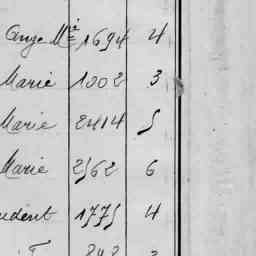 Ange Mie 1694 4
Marie 1002 3
Marie 2414 5
Marie 2562 6
udent 1775 4